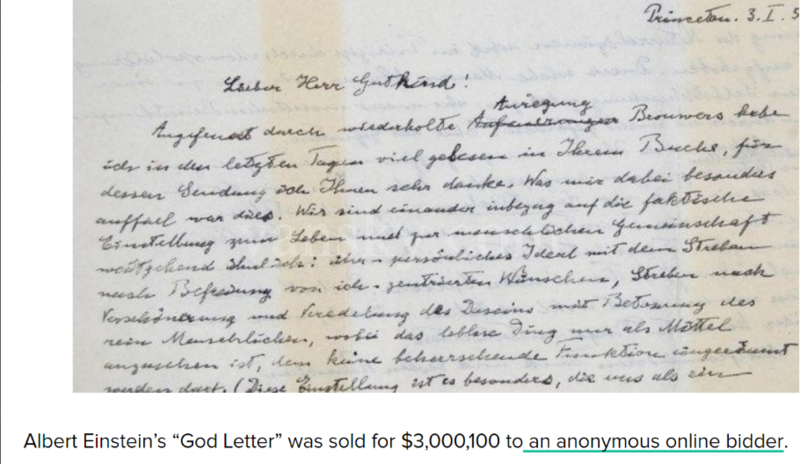 Princeton. 3. I. 5
Lieber Herr Gutkind!
Anregung
Angefeuert durch wiederholte Brouwers habe
ich in den letzten Tagen viel gelesen in Ihrem Buche, für
dessen Sendung ich Ihnen sehr danke. Was mir dabei besonders
auffiel war dies. Wir sind einander inbezug auf die faktische
Einstellung zum Leben und zur menschlichen Gemeinschaft
weitgehend ähnlich: über-persönliches Ideal mit dem Streben
nach Befreiung von ich-zentrierten Wünschen, Streben nach
Verschönerung und Veredelung des Daseins mit Betonung des
rein Menschlichen, wobei das leblose Ding nur als Mittel
anzusehen ist, dem keine beherrschende Funktion eingeräumt
werden darf. (Diese Einstellung ist es besonders, die uns als ein
Albert Einstein’s “God Letter” was sold for $3,000,100 to an anonymous online bidder.